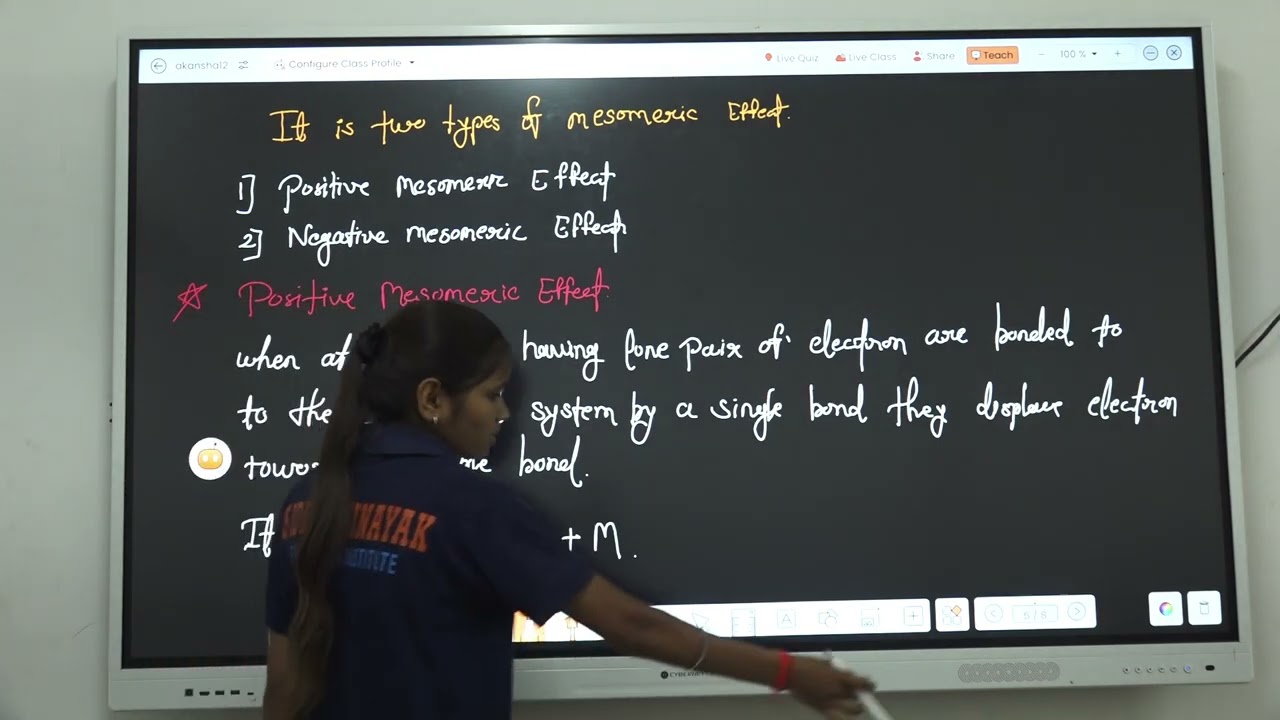 akansha12
Configure Class Profile
Live Quiz
Live Class
Share
Teach
100 %
It is two types of mesomeric Effect.
1] Positive Mesomeric Effect
2] Negative mesomeric Effect
Positive Mesomeric Effect.
when at having lone pair of electron are bonded to
to the system by a single bond they displace electron
towar bond.
It + M.
NAYAK